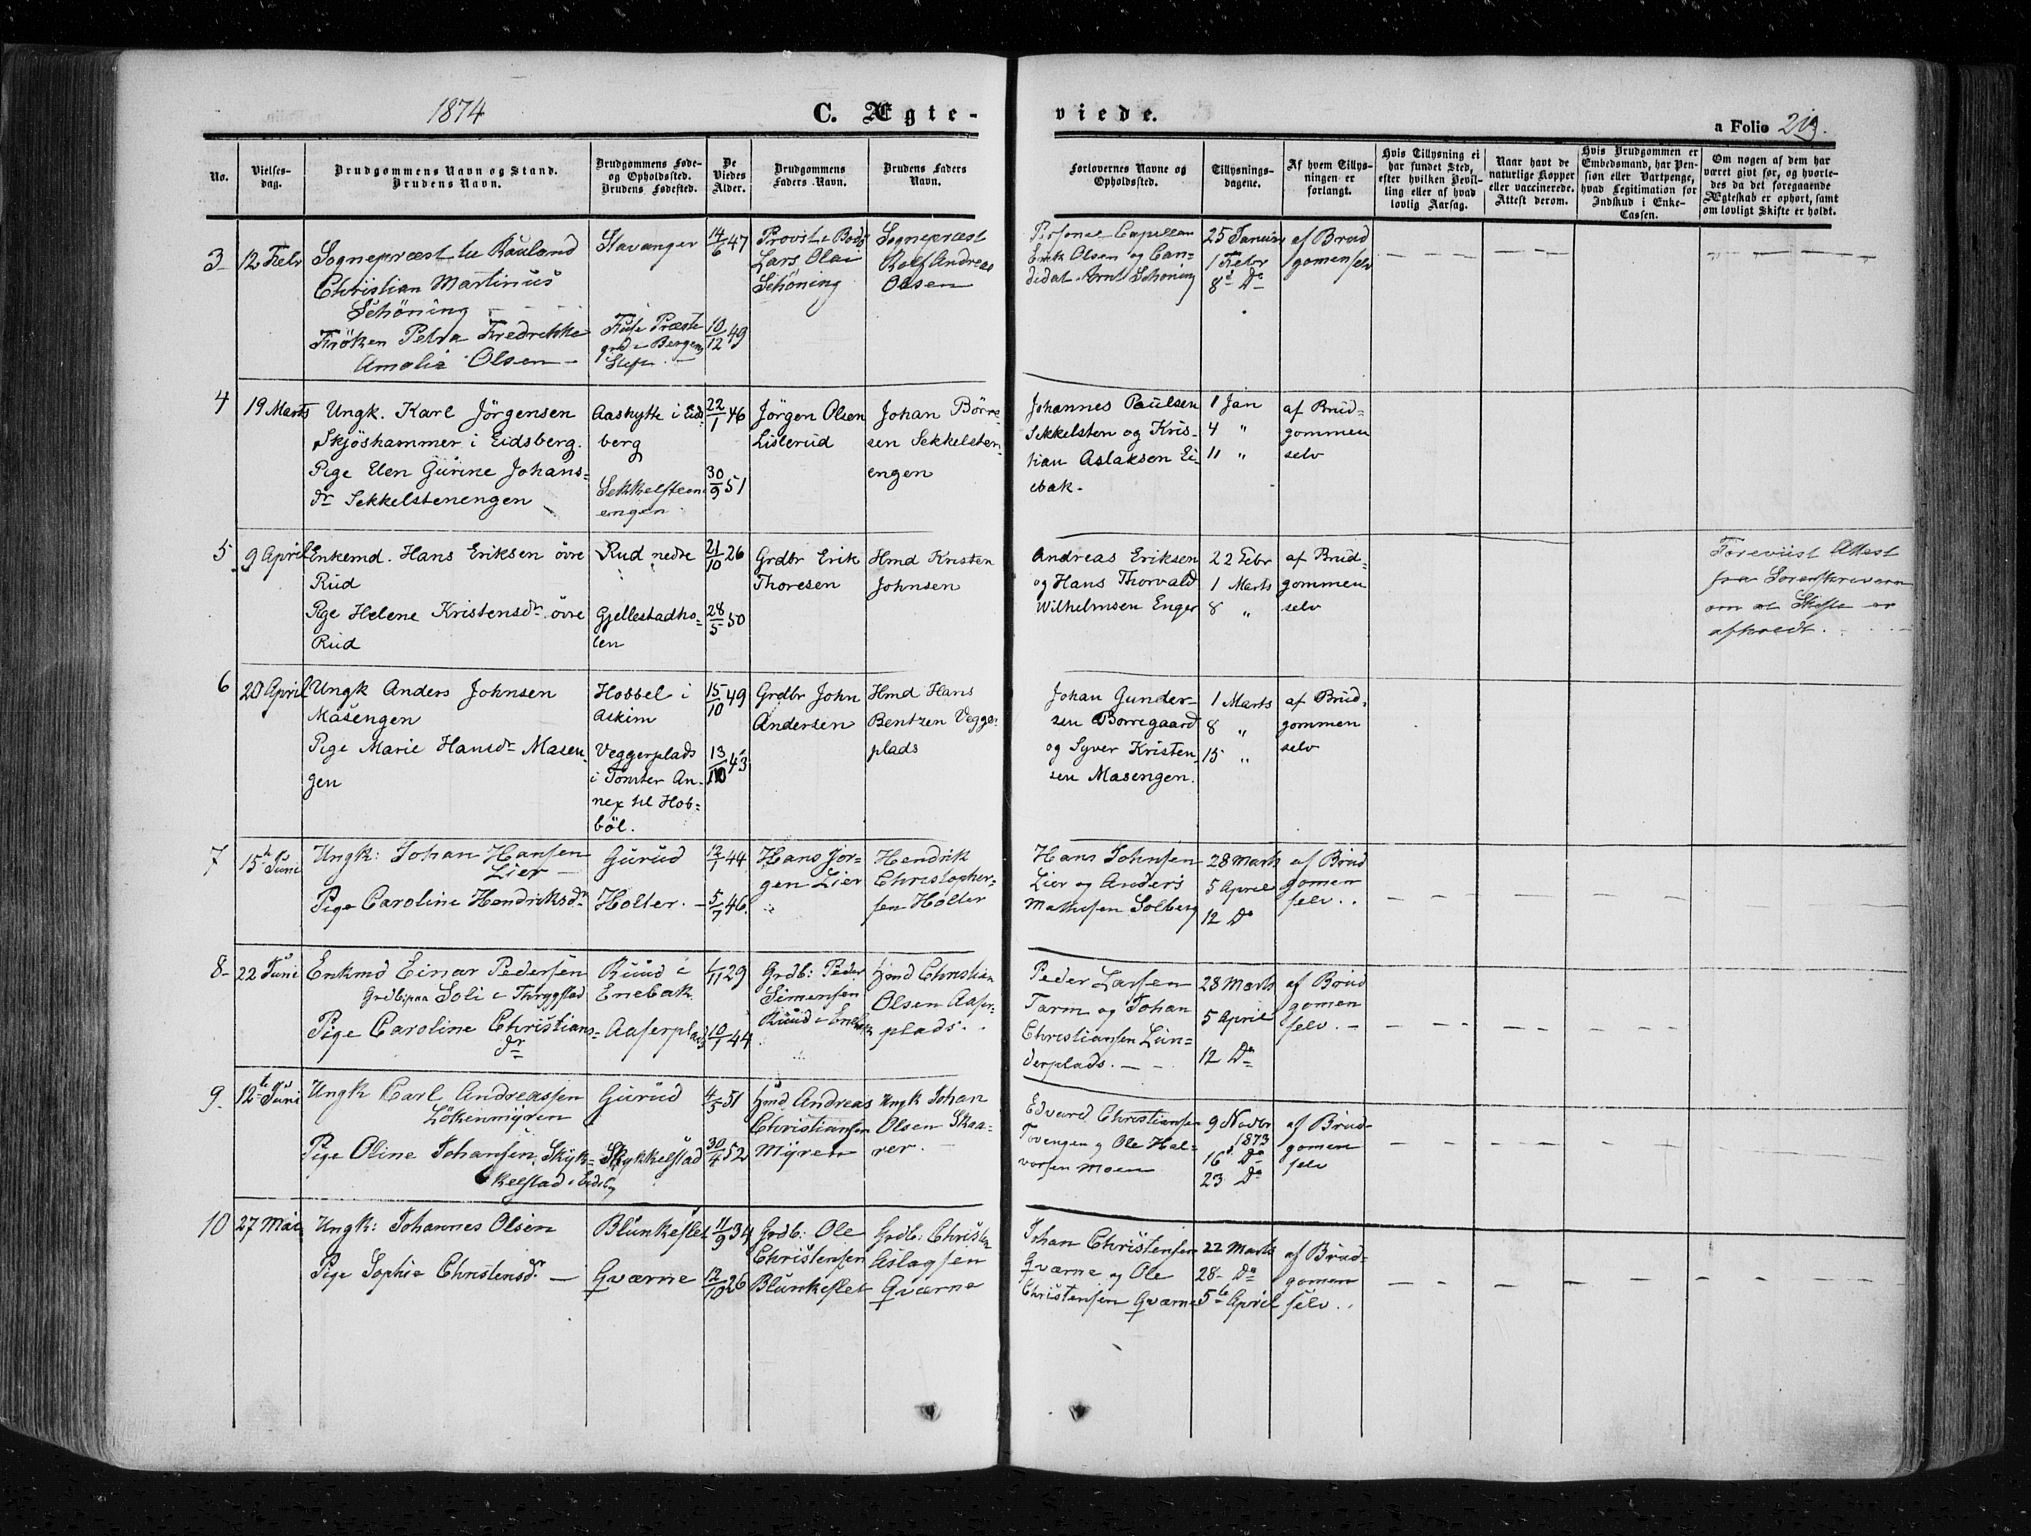 1874
C. Ægte-
viede.
a Folio 219.
No.
Vielses-
dag.
Brudgommens Navn og Stand.
Brudens Navn.
Brudgommens Føde-
og Opholdssted.
Brudens Fødested.
De
Viedes
Alder.
Brudgommens
Faders Navn.
Brudens Faders
Navn.
Forlovernes Navne og
Opholdssted.
Tillysnings-
dagene.
Af hvem Tillys-
ningen er
forlangt.
Hvis Tillysning ei
har fundet Sted,
efter hvilken Bevil-
ling eller af hvad
lovlig Aarsag.
Naar havt de
naturlige Kopper
eller vaccinerede.
Attest derom.
Hvis Brudgommen er
Embedsmand, har Pen-
sion eller Vartpenge,
hvad Legitimation for
Indskud i Enke-
Cassen.
Om nogen af dem har
været givt før, og hvorle-
des da det foregaaende
Ægteskab er ophørt, samt
om lovligt Skifte er holdt.
3
12 Febr
Sognepræst til Rauland
Christian Martinus
Schöning
Fröken Petra Fredrikke
Amalie Olsen
Stavanger
Fuse Præste
grd i Bergens
Stift
14/6 47
10/12 49
Provst i Bodö
Lars Olai
Schöning
Sognepræst
Rolf Andreas
Olsen
Personel Capellan
Erik Olsen og Can-
didat Arnt Schöning
25 Januar
1 Febr
8 Do
af Brud
gomen selv
4
19 Marts
Ungk. Karl Jörgensen
Skjöshammer i Eidsberg.
Pige Elen Gurine Johans-
dr Sekkelstenengen
Aashytte i Eids-
berg
Sekkelsteens
engen
22/1 46
30/9 51
Jörgen Olsen
Listerud
Johan Börre-
sen Sekkelsten-
engen
Johannes Paulsen
Sekkelsten og Kris-
tian Aslaksen Ei-
ebak.
1 Jan
4 "
11 "
af Brud-
gommen
selv
5
9 April
Enkemd. Hans Eriksen övre
Rud
Pige Helene Kristensdr. övre
Rud
Rud nedre
Gjellestadho-
len
21/10 26
28/5 50
Grdbr Erik
Thoresen
Hmd Kristen
Johnsen
Andreas Eriksen
og Hans Thorvald
Wilhelmsen Enger
22 Febr
1 Marts
8 "
af Brud-
gommen
selv
Foreviist Attest
fra Sorenskriveren
om at Skifte er
afholdt.
6
20 April
Ungk Anders Johnsen
Masengen
Pige Marie Hansdr. Masen-
gen
Hobbel i
Askim
Veggerplads
i Tomter An-
nex til Hob-
böl.
15/10 49
13/10 43
Grdbr John
Andersen
Hmd Hans
Bentzen Vegger-
plads
Johan Gunder-
sen Borregaard
og Syver Kristen-
sen Masengen.
1 Marts
8 "
15 "
af Brud-
gommen
selv
7
15 Juni
Ungk: Johan Hansen
Lier
Pige Caroline Hendriksdr
Gurud
Holter.
12/1 44
5/7 46.
Hans Jör-
gen Lier
Hendrik
Christopher-
sen Holter
Hans Johnsen
Lier og Anders
Mathisen Solberg
28 Marts
5 April
12 Do
af Brud
gomen
selv.
8
22 Juni
Enkmd Einar Pedersen
Grdbr paa Soli i Thrygstad
Pige Caroline Christians-
dr
Ruud i
Enebak
Aaserplads
1/11 29
10/1 44
Grdb: Peder
Simensen
Ruud i Enebak
Hmd Christian
Olsen Aaser-
plads.
Peder Larsen
Tarm og Johan
Christiansen Lun-
derplads.
28 Marts
5 April
12 Do
af Brud
gomen
selv.
9
12 Juni
Ungk Carl Andreassen
Lökenmyren
Pige Oline Johansen, Skyk-
kelstad i Eidsb
Gurud
Skykkelstad
4/5 51
30/4 52
Hmd Andreas
Christiansen
Myren
Ungk Johan
Olsen Skaa-
rer
Edvard Christiansen
Tovengen og Ole Hal-
vorsen Moen
9 Novbr
1873
16 Do
23 Do
af Brud
gomen
selv
10
27 Mai
Ungk: Johannes Olsen
Pige Sophie Christensdr.
Blunkeflet
Qværne
11/9 34
12/10 26
Grdb: Ole
Christensen
Blunkeflet
Grdb: Christen
Aslagsen
Qværne
Johan Christensen
Qværne og Ole
Christensen Qværne
22 Marts
28 Do
5te April
af Brud-
gomen
selv.